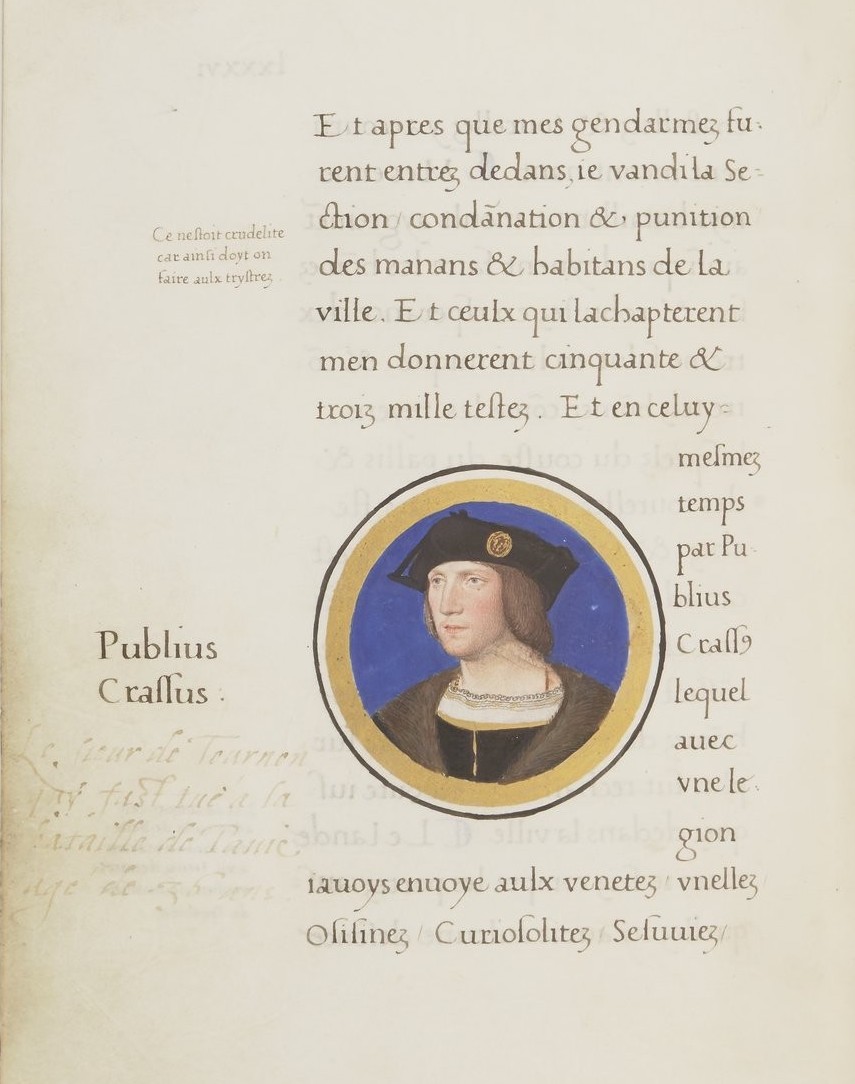 Et apres que mes gendarmez fu-
rent entrez dedans, ie vandi la Se-
ction / condānation & punition
des manans & habitans de la
ville. Et ceulx qui lachapterent
men donnerent cinquante &
troiz mille testez. Et en celuy-
mesmez
temps
par Pu-
blius
Crassꝯ
lequel
auec
vne le-
gion
iauoys enuoye aulx venetez / vnellez
Osisinez / Curiosolitez / Sesuuiez /
Ce nestoit crudelite
car ainsi doyt on
faire aulx trystrez
Publius
Crassus.
Le sieur de Tournon
qui fust tué a la
bataille de Pavie
age de 36 ans.